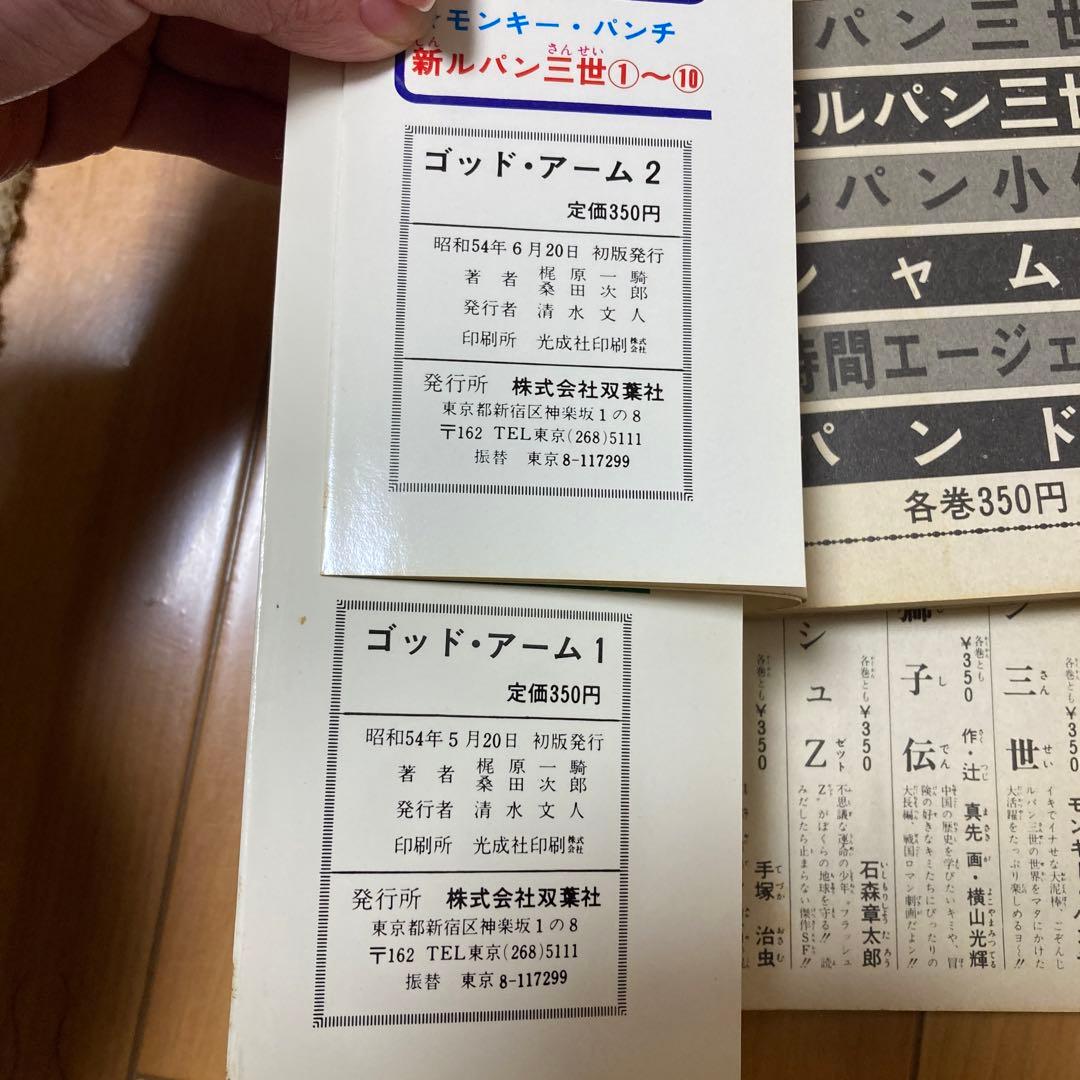 ☆モンキー・パンチ
新ルパン三世①～⑩
しん
さんせい
ゴッド・アーム 2
定価350円
昭和54年6月20日 初版発行
著者 梶原一騎
桑田次郎
発行者 清水文人
印刷所 光成社印刷株式会社
発行所 株式会社双葉社
東京都新宿区神楽坂1の8
〒162 TEL東京(268)5111
振替 東京8-117299
ゴッド・アーム 1
定価350円
昭和54年5月20日 初版発行
著者 梶原一騎
桑田次郎
発行者 清水文人
印刷所 光成社印刷株式会社
発行所 株式会社双葉社
東京都新宿区神楽坂1の8
〒162 TEL東京(268)5111
振替 東京8-117299
パン三世
ルパン三世
パン小
ャム
時間エージェ
パンド
各巻350円
三世
さんせい
各巻とも
モンキー
イキでイナせな大泥棒、こぞんじ
ルパン三世の世界をマタにかけた
大活躍をたっぷり楽しめるヨ〜!!
子伝
しでん
各巻とも¥350
作・辻真先 画・横山光輝
つじまさき が よこやまみつてる
中国の歴史を学びたいキミや、冒
険の好きなキミたちにぴったりの
大長編、戦国ロマン劇画だよン!!
シュZ
ゼット
各巻とも¥350
石森章太郎
いしもりしょうたろう
不思議な運命の少年“フラッシュ
Z”がぼくらの地球を守る!! 読
みだしたら止まらない傑作SF!!
各巻とも¥350
手塚治虫
てづかおさむ